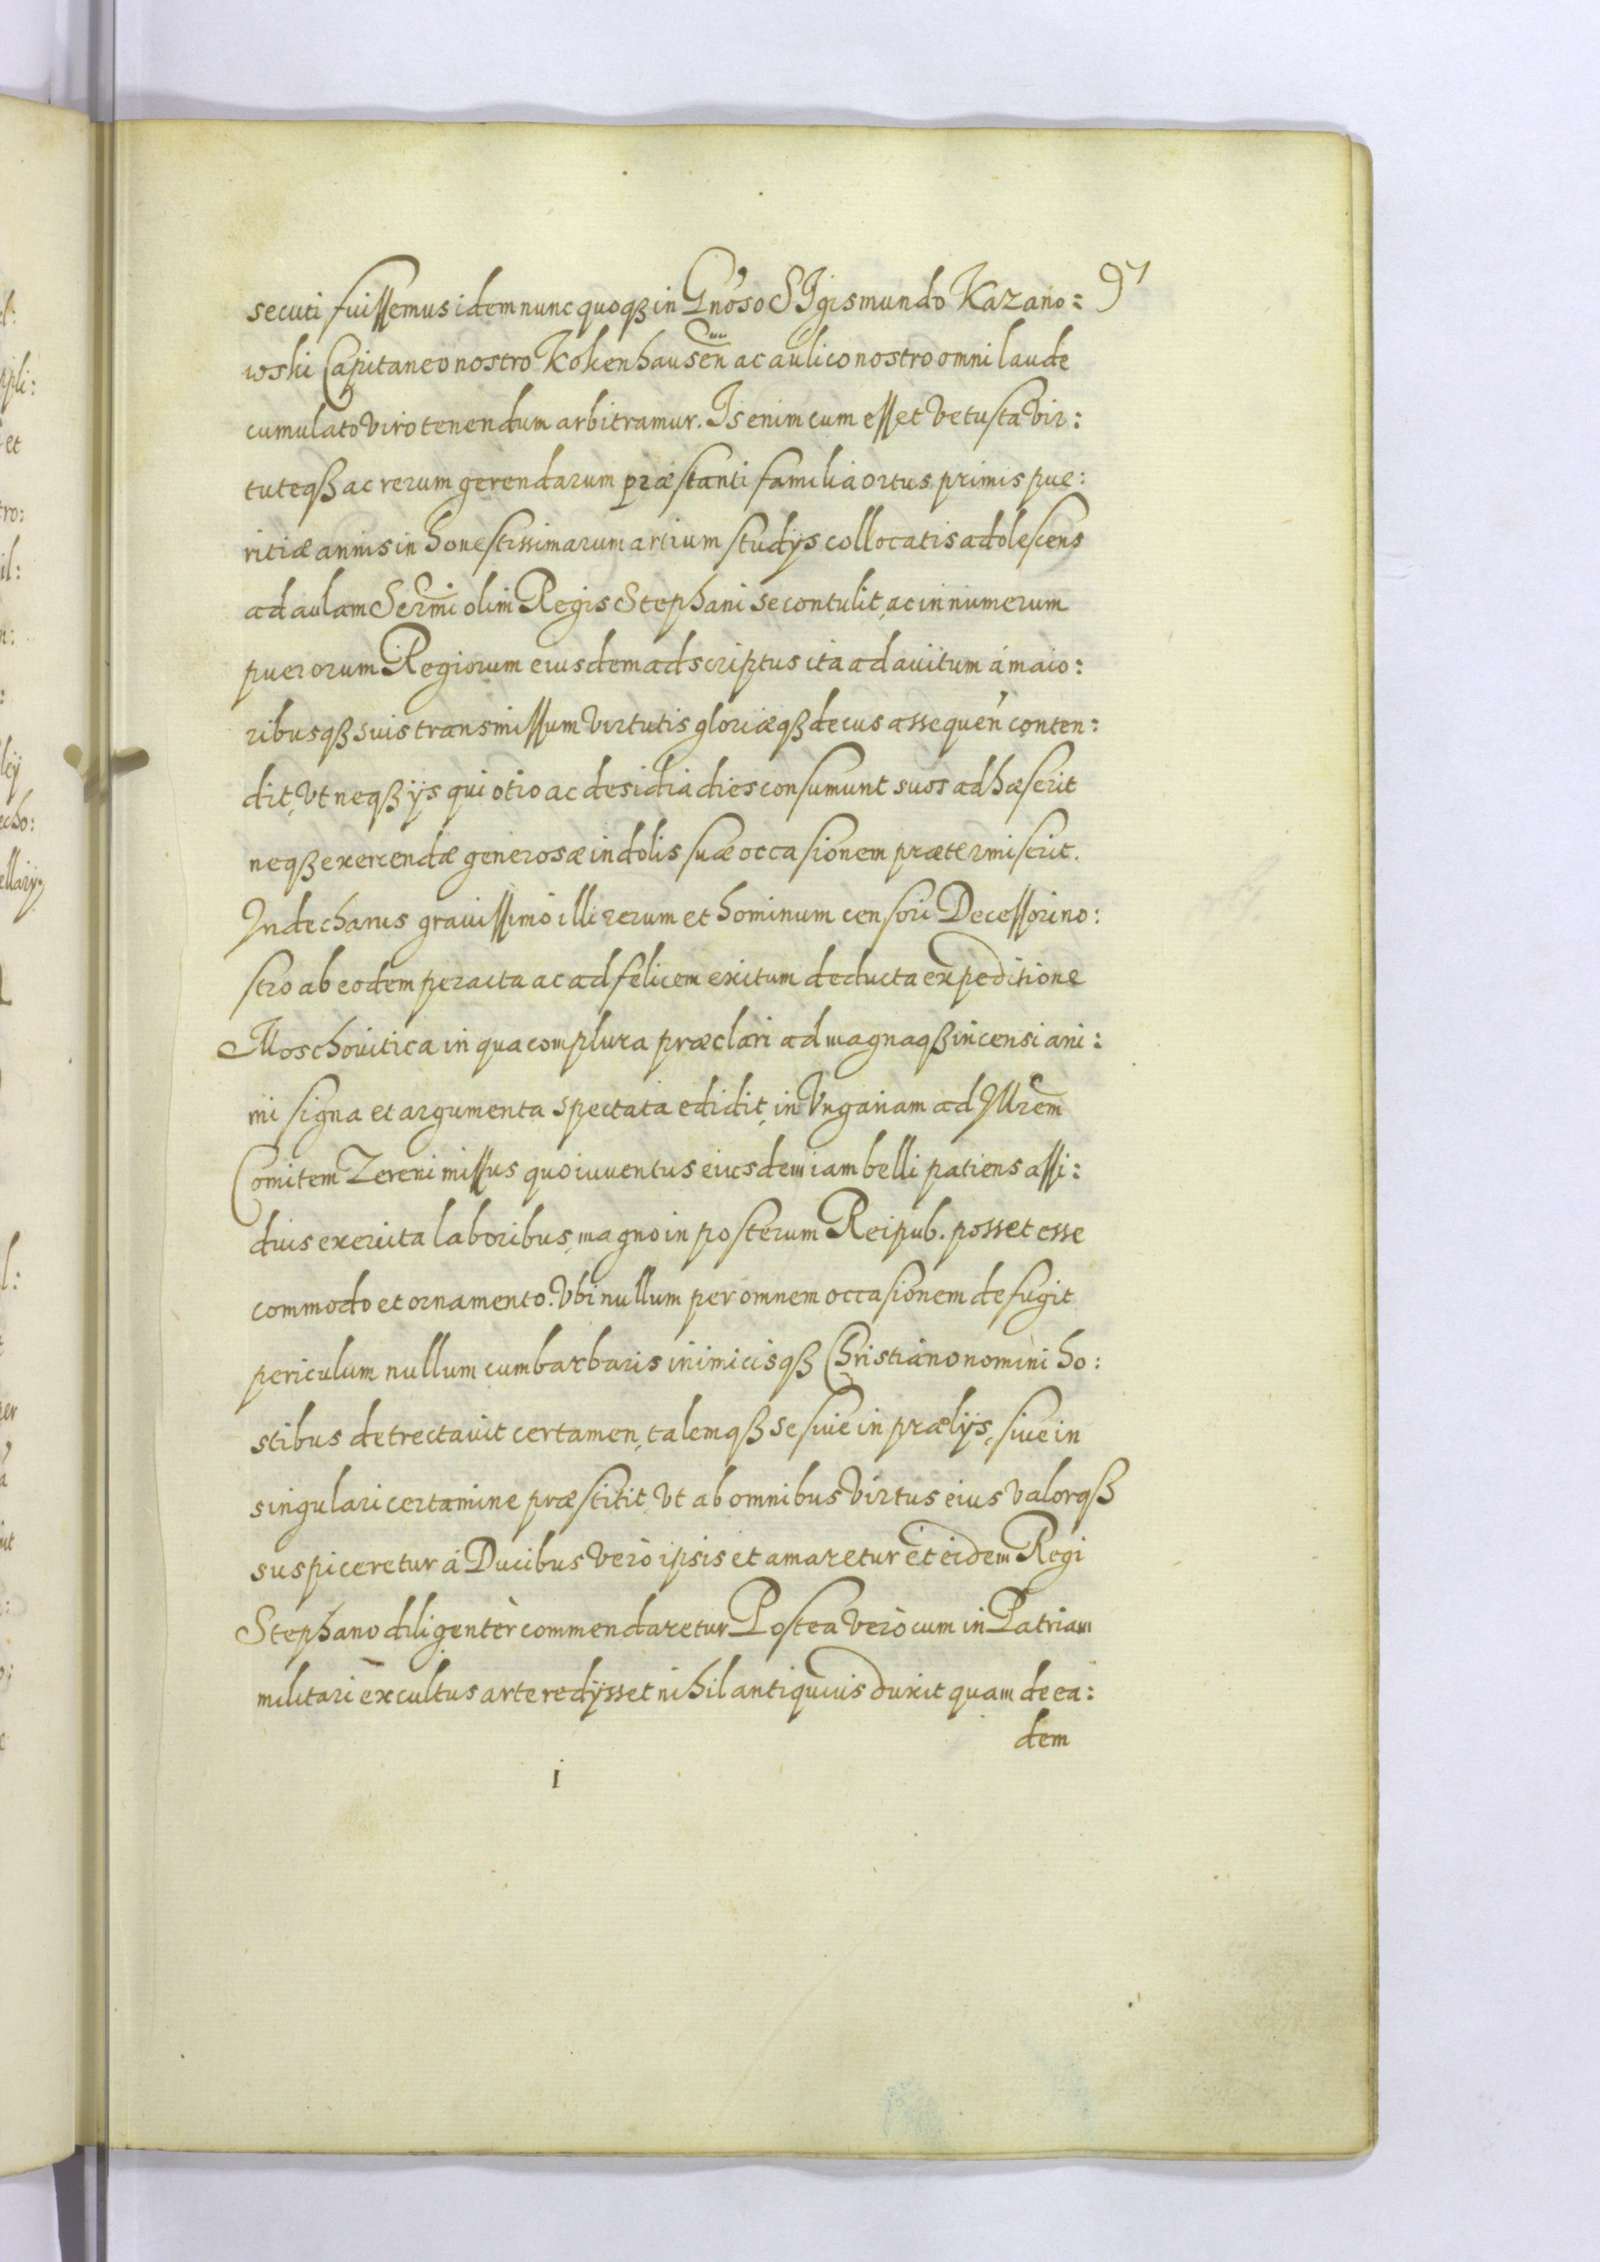 secuti fuissemus idem nunc quoqß in Gnoso SIgismundo Kazano: 97
wski Capitaneo nostro Kokenhausen ac aulico nostro omni laude
cumulato viro tenendum arbitramur. Is enim cum esset vetusta vir:
tuteqß ac rerum gerendarum præstanti familia ortus primis pue:
ritiæ annis in honestissimarum artium studÿs collocatis adolescens
ad aulam Sermi olim Regis Stephani se contulit, ac in numerum
puerorum Regiorum eiusdem adscriptus ita ad avitum á maio:
ribusqß suis transmissum virtutis gloriæqß decus assequen' conten:
dit, vt neqß ÿs qui otio ac desidia dies consumunt suos adhæserit
neqß exercendæ generosæ indolis suæ occasionem prætermiserit.
Inde charus gravissimo illi rerum et hominum censori Decessori no:
stro ab eodem peracta ac ad felicem exitum deducta expeditione
Moschovitica in qua complura præclari ad magnaqß incensi ani:
mi signa et argumenta spectata edidit, in Vngariam ad Mrem
Comitem Zereni missus quo iuventus eiusdem iam belli patiens assi:
duis exercita laboribus, magno in posterum Reipub. posset esse
commodo et ornamento. Vbi nullum per omnem occasionem defugit
periculum nullum cum barbaris inimicisqß Christiano nomini ho:
stibus detrectavit certamen, talemqß se sive in prælÿs, sive in
singulari certamine præstitit, vt ab omnibus virtus eius valorqß
suspiceretur á Ducibus verò ipsis et amaretur et eidem Regi
Stephano diligentèr commendaretur Postea verò cum in Patriam
militari excultus arte redÿsset nihil antiquius duxit quam de ea:
dem
I